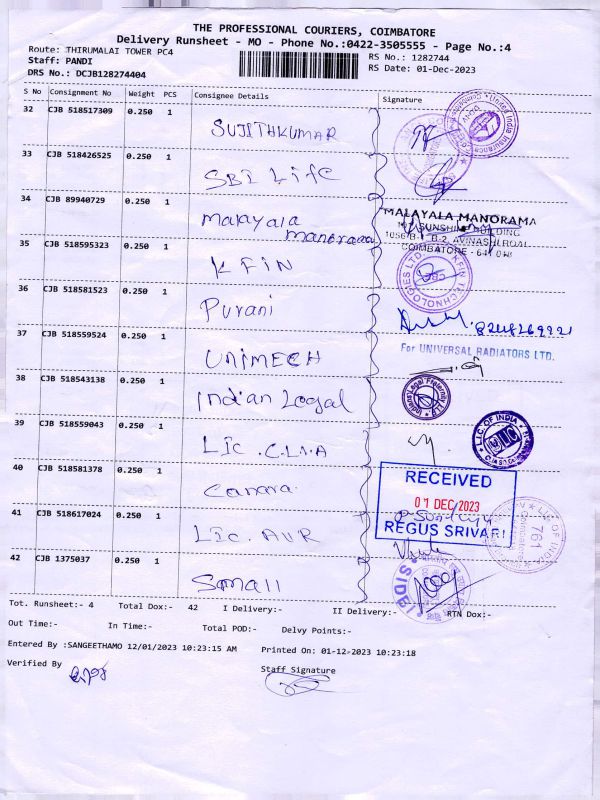 THE PROFESSIONAL COURIERS, COIMBATORE
Delivery Runsheet - MO - Phone No.:0422-3505555 - Page No.:4
Route: THIRUMALAI TOWER PC4
RS No.: 1282744
Staff: PANDI
RS Date: 01-Dec-2023
DRS No.: DCJB128274404
S No Consignment No Weight PCS Consignee Details Signature
32 CJB 518517309 0.250 1 SUJITHKUMAR
33 CJB 518426525 0.250 1 SBI Life
34 CJB 89940729 0.250 1 Malayala manorama
MALAYALA MANORAMA
SUNSHINE BUILDING
AVINASHI ROAD
COIMBATORE - 641 018
35 CJB 518595323 0.250 1 KFIN
36 CJB 518581523 0.250 1 Purani
37 CJB 518559524 0.250 1 UNIMECH
For UNIVERSAL RADIATORS LTD.
38 CJB 518543138 0.250 1 Indian Legal
39 CJB 518559043 0.250 1 LIC .C.L.A
L.I.C OF INDIA
LIC
40 CJB 518581378 0.250 1 Canara
RECEIVED
01 DEC 2023
REGUS SRIVARI
41 CJB 518617024 0.250 1 LIC. AUR
LIC OF INDIA
761
Coimbatore
42 CJB 1375037 0.250 1 Small
SIDB
Tot. Runsheet:- 4 Total Dox:- 42 I Delivery:- II Delivery:- RTN Dox:-
Out Time:- In Time:- Total POD:- Delvy Points:-
Entered By :SANGEETHAMO 12/01/2023 10:23:15 AM Printed On: 01-12-2023 10:23:18
Verified By Staff Signature